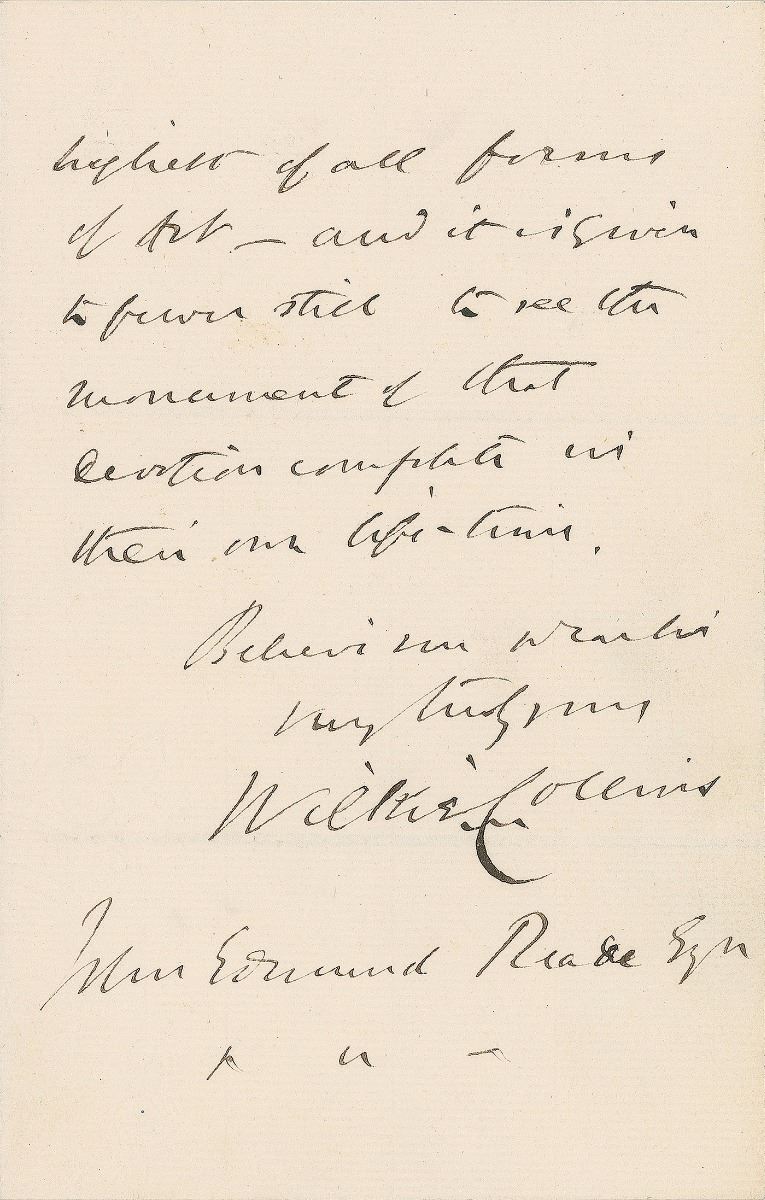 highest of all forms
of Art – and it is given
to fewer still to see the
monument of that
devotion complete in
their own life-time.
Believe me, dear Sir
very truly yours
Wilkie Collins
John Edmund Reade Esqre